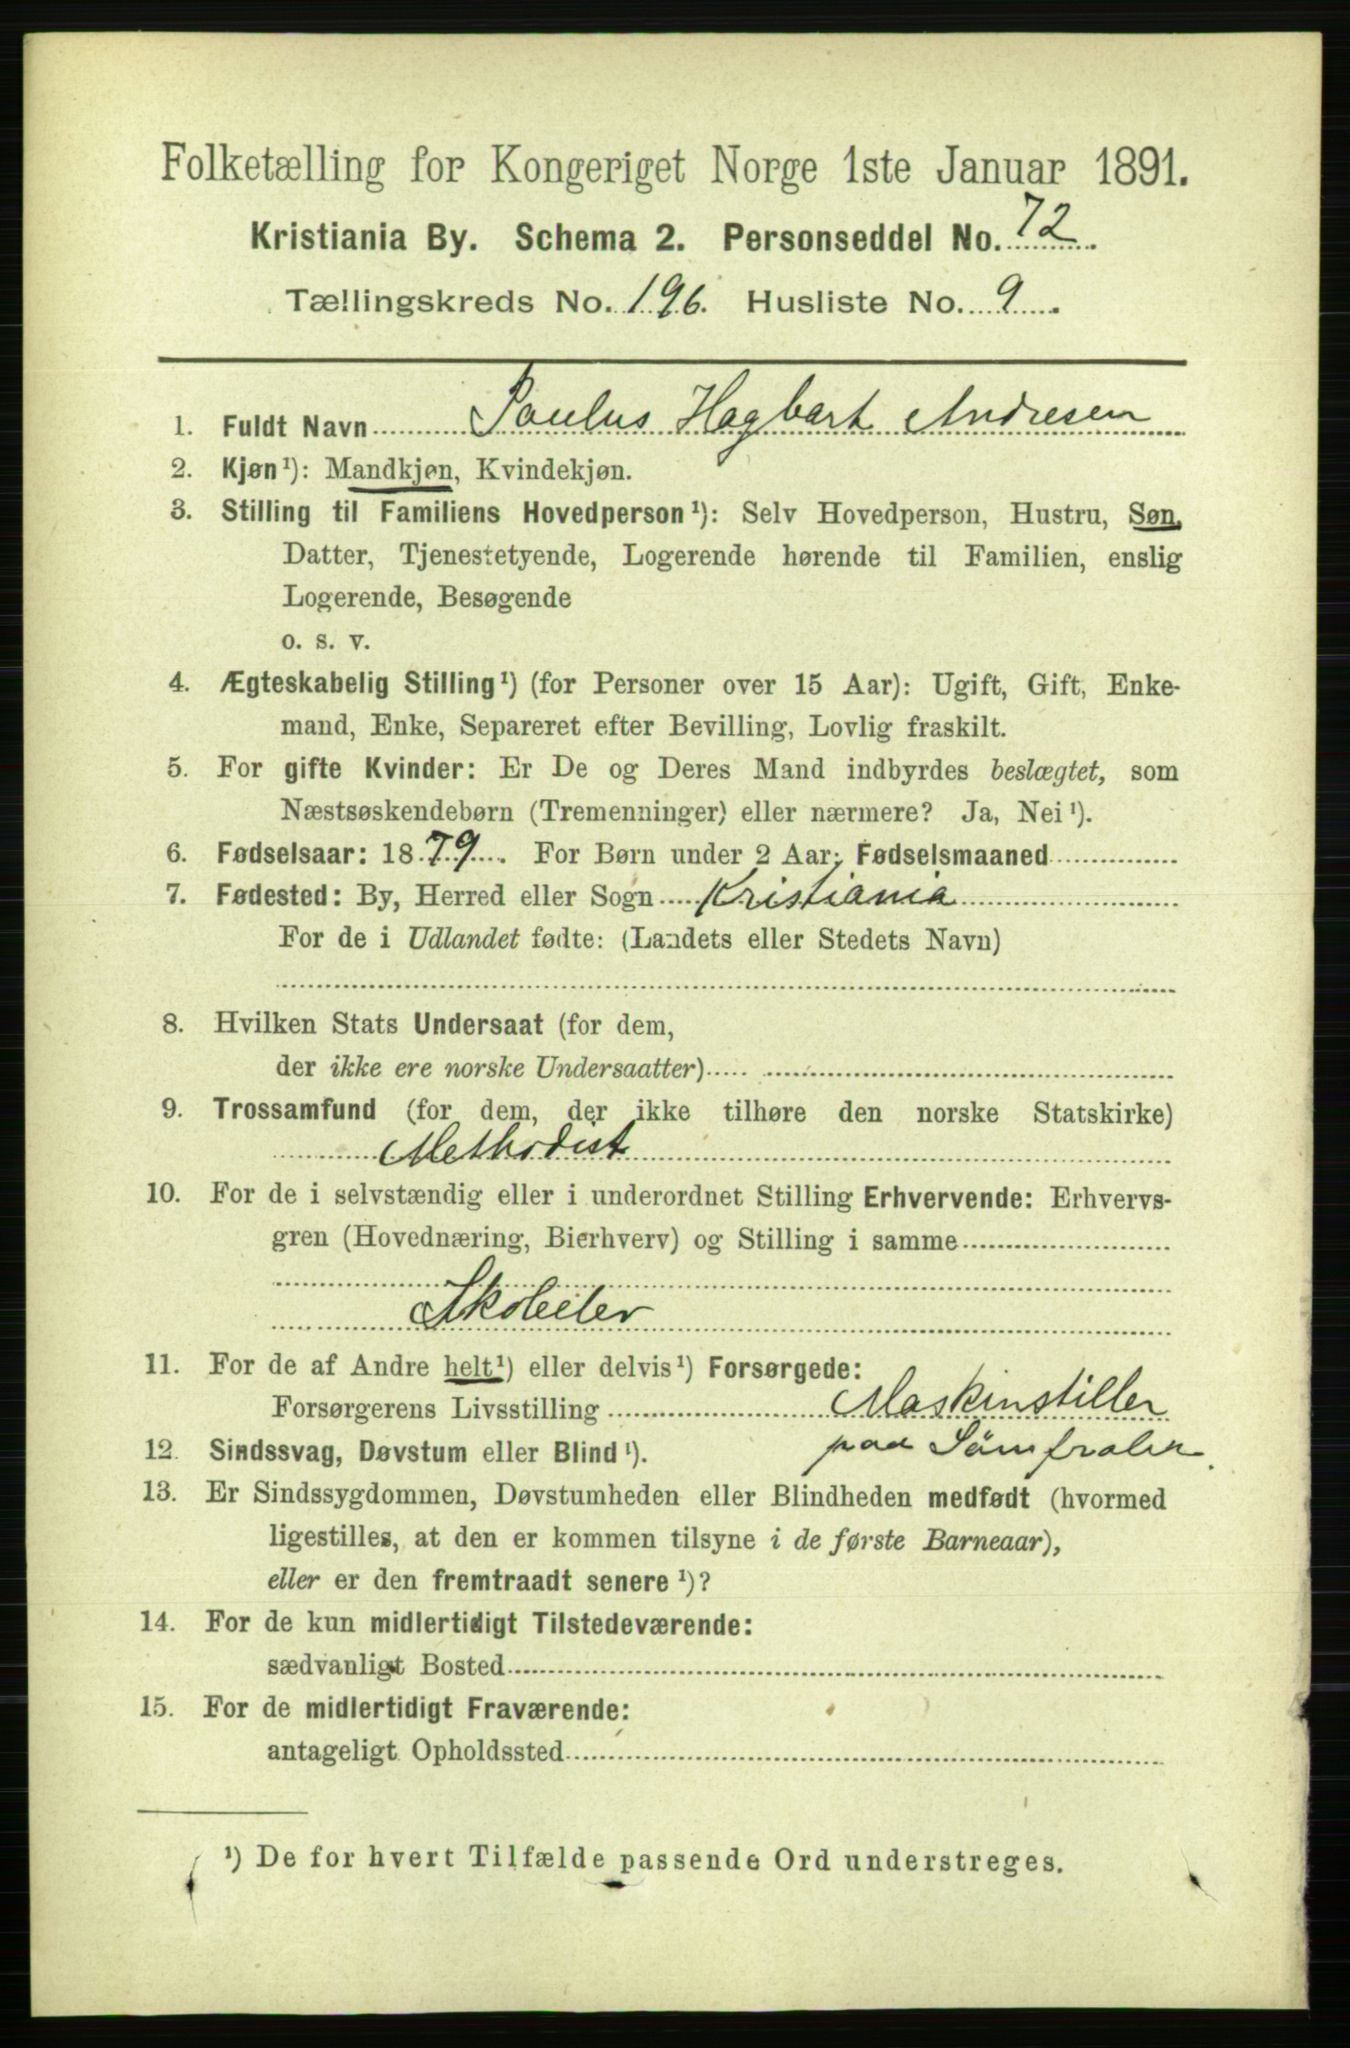 Folketælling for Kongeriget Norge 1ste Januar 1891.
Kristiania By. Schema 2. Personseddel No. 72
Tællingskreds No. 196. Husliste No. 9
1. Fuldt Navn Paulus Hagbart Andresen
2. Kjøn¹): Mandkjøn, Kvindekjøn.
3. Stilling til Familiens Hovedperson¹): Selv Hovedperson, Hustru, Søn,
Datter, Tjenestetyende, Logerende hørende til Familien, enslig
Logerende, Besøgende
o. s. v.
4. Ægteskabelig Stilling¹) (for Personer over 15 Aar): Ugift, Gift, Enke-
mand, Enke, Separeret efter Bevilling, Lovlig fraskilt.
5. For gifte Kvinder: Er De og Deres Mand indbyrdes beslægtet, som
Næstsøskendebørn (Tremenninger) eller nærmere? Ja, Nei¹).
6. Fødselsaar: 1879. For Børn under 2 Aar: Fødselsmaaned
7. Fødested: By, Herred eller Sogn Kristiania
For de i Udlandet fødte: (Landets eller Stedets Navn)
8. Hvilken Stats Undersaat (for dem,
der ikke ere norske Undersaatter)
9. Trossamfund (for dem, der ikke tilhøre den norske Statskirke)
Methodist
10. For de i selvstændig eller i underordnet Stilling Erhvervende: Erhvervs-
gren (Hovednæring, Bierhverv) og Stilling i samme
Skolelev
11. For de af Andre helt¹) eller delvis¹) Forsørgede:
Forsørgerens Livsstilling Maskinstiller
paa Sömfrabr.
12. Sindssvag, Døvstum eller Blind¹).
13. Er Sindssygdommen, Døvstumheden eller Blindheden medfødt (hvormed
ligestilles, at den er kommen tilsyne i de første Barneaar),
eller er den fremtraadt senere¹)?
14. For de kun midlertidigt Tilstedeværende:
sædvanligt Bosted
15. For de midlertidigt Fraværende:
antageligt Opholdssted
¹) De for hvert Tilfælde passende Ord understreges.